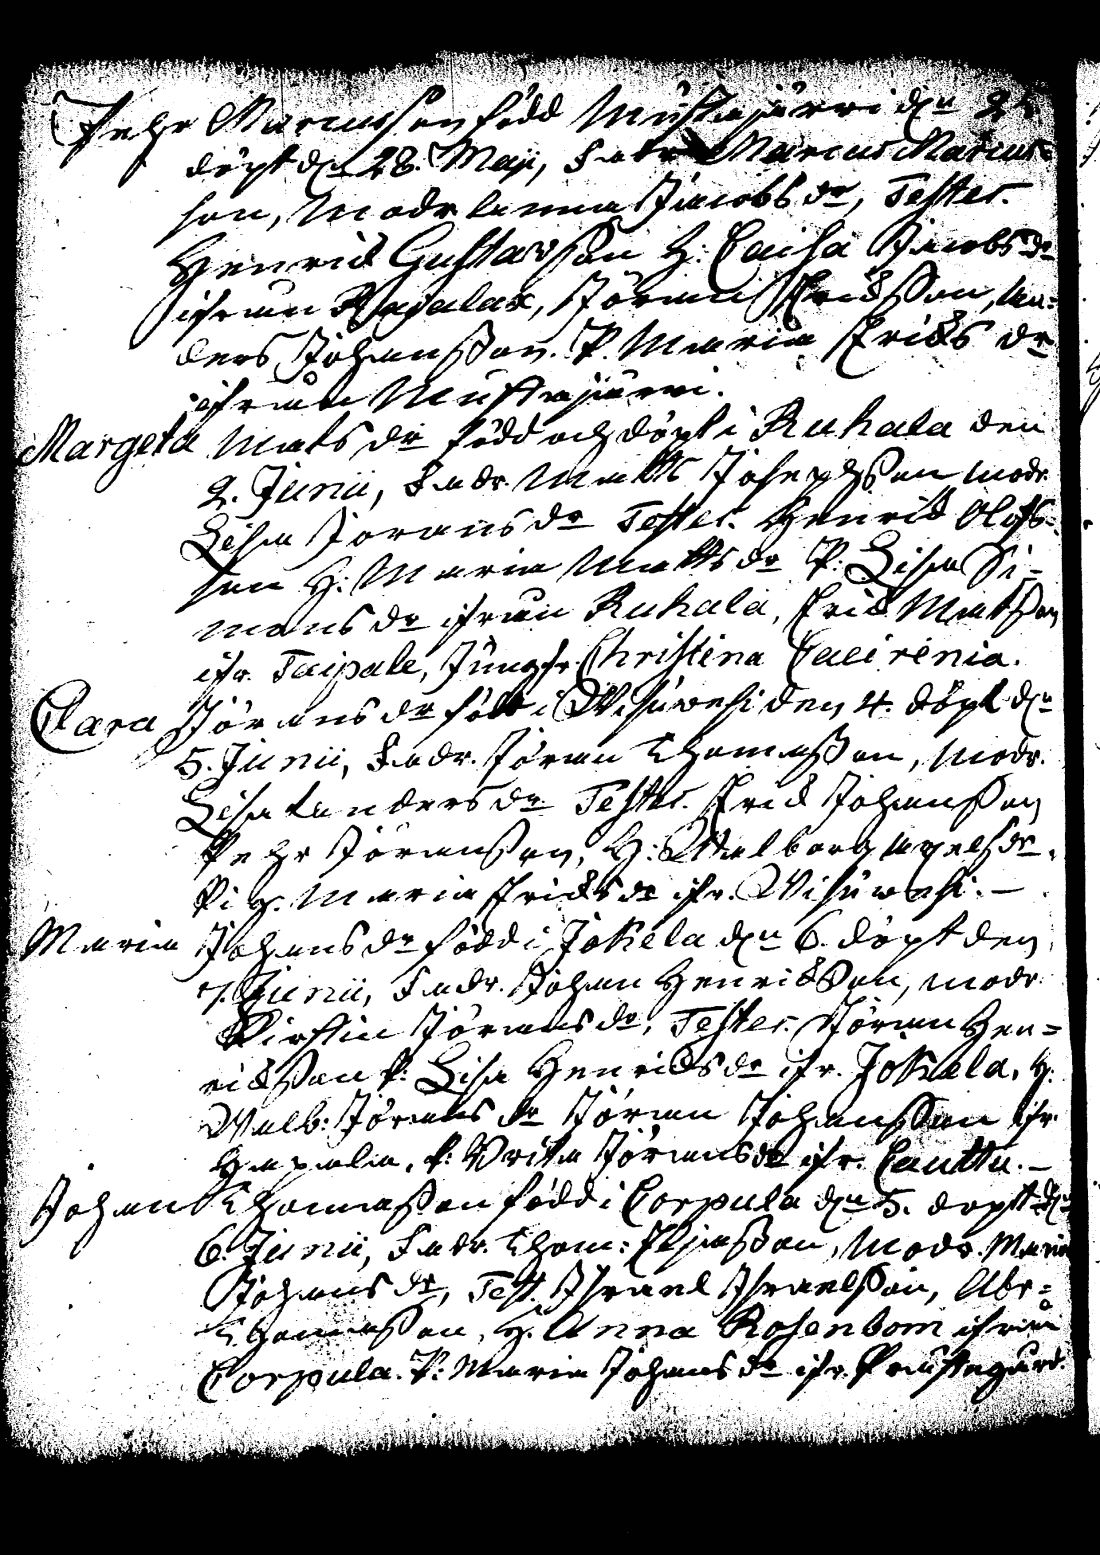 Pehr Marcusson född Mustajärvi dn 2
döpt dn 28. Maji, Fadr Marcus Marcus
son, Modr Anna Jacobs dr, Testes.
Henric Gustavsson H: Caisa Jacobs dr
ifrån Pajalax, Jöran Ericksson, An=
ders Johansson. P. Maria Ericks dr
ifrån Mustajärvi.
Margeta Mats dr född och döpt i Ruhala den
2. Junii, Fadr. Matts Josephsson modr.
Lisa Jörans dr Testes. Henrik Olofs=
son H: Maria Matts dr P: Lisa Si=
mons dr ifrån Ruhala, Erik Matsson
ifr. Taipale, Jungfr. Christina Caeirenia.
Clara Jörans dr född i Wisuwesi den 4. döpt dn
5. Junii, Fadr. Jöran Thomasson, Modr.
Lisa Anders dr Testes. Erik Johansson
Pehr Jöransson, H: Walborg Axels dr.
Pig. Maria Ericks dr ifr. Wisuwesi. —
Maria Johans dr född i Jokela dn 6. döpt den
7. Junii, Fadr. Johan Henriksson, modr
Kirstin Jörans dr, Testes. Jöran Hen=
riksson P: Lisa Henriks dr ifr. Jokela, H:
Walb: Jörans dr Jöran Johansson ifr
Hapala, P: Brita Jörans dr ifr. Cauttu. —
Johan Thomasson född i Corpula dn 5. döpt dn
6. Junii, Fadr. Thom: Eljasson, Modr. Maria
Johans dr, Test. Israel Israelsson, Abr=
Thomasson, H. Anna Rosenbom ifrån
Corpula. P: Maria Johans dr ifr. Prustegård.